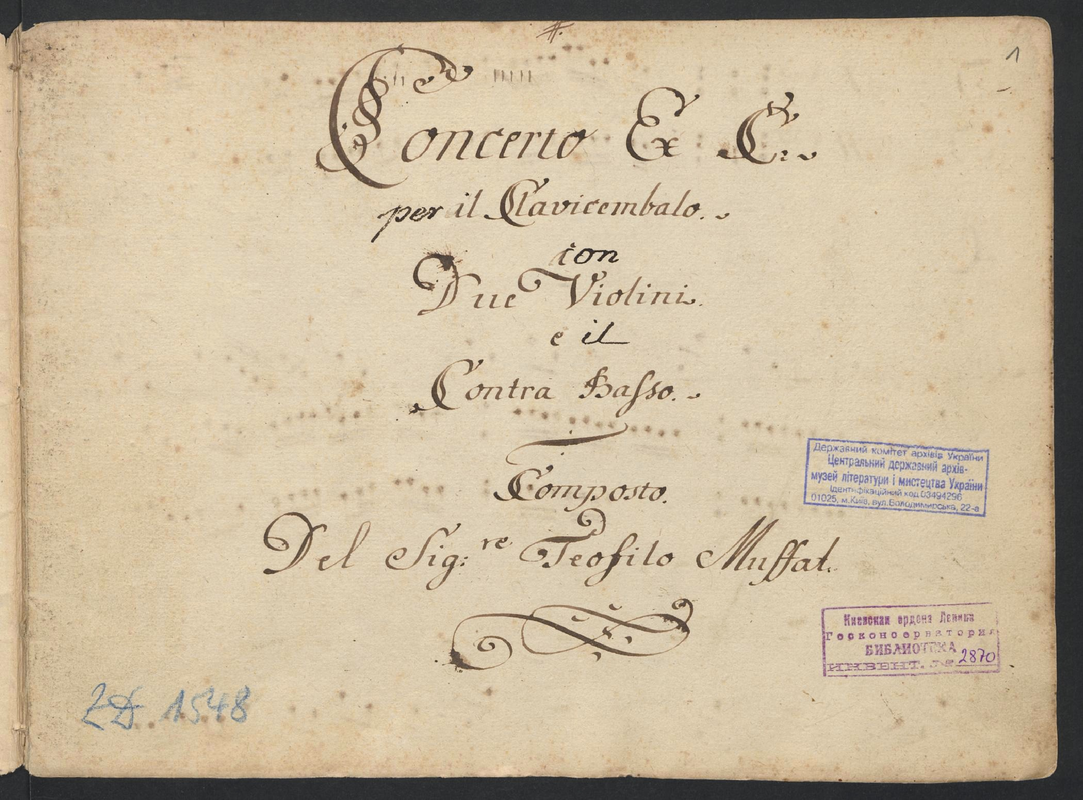 #.
1
Concerto Ex C:
per il Clavicembalo.
con
Due Violini.
e il
Contra Basso.
Composto.
Del Sig:re Teofilo Muffat.
Державний комітет архівів України
Центральний державний архів-
музей літератури і мистецтва України
ідентифікаційний код 03494296
01025, м.Київ, вул.Володимирська, 22-а
Киевская ордена Ленина
Госконсерватория
БИБЛИОТЕКА
ИНВЕНТ. № 2870
ZD 1548